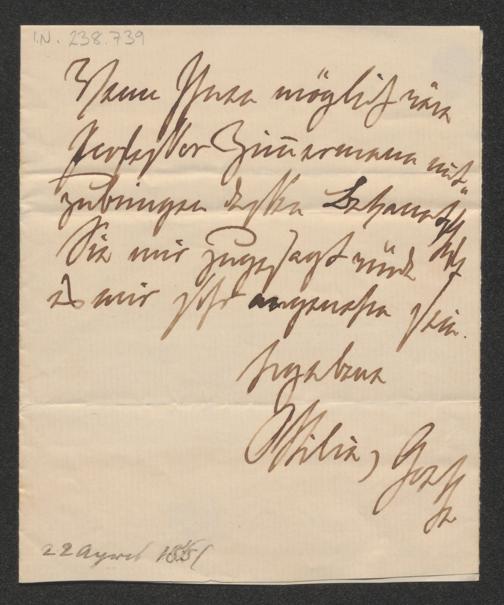 I.N. 238.739
Wenn Ihnen möglich wäre
Professor Zimmermann mit-
zubringen dessen Bekanntschaft
Sie mir zugesagt würde
es mir sehr angenehm sein.
Ergebene
Ottilie, Goethe
22 April 1851